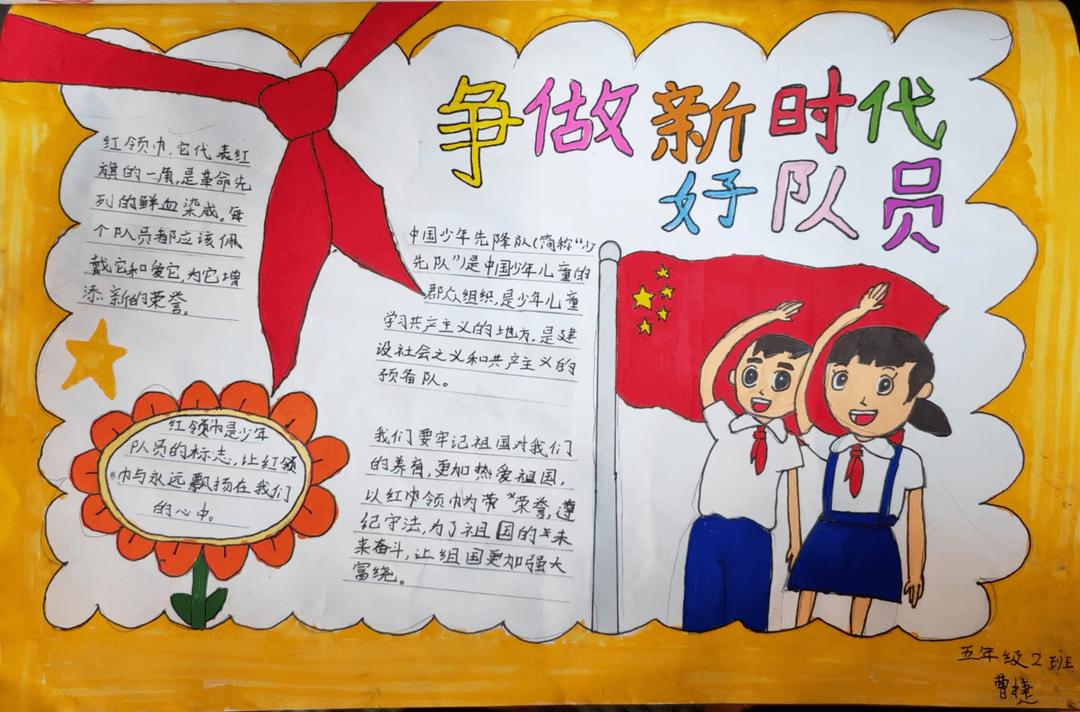 争做新时代
好队员
红领巾,它代表红
旗的一角,是革命先
列的鲜血染成。每
个队员都应该佩
戴它和爱它,为它增
添新的荣誉。
中国少年先降队(简称“少
先队”)是中国少年儿童的
群众组织,是少年儿童
学习共产主义的地方,是建
设社会之义和共产主义的
预备队。
红领巾是少年
队员的标志,让红领
巾与永远飘扬在我们
的心中。
我们要牢记祖国对我们
的养育,更加热爱祖国,
以红巾领巾为带“荣誉,遵
纪守法,为了祖国的未
来奋斗,让组国更加强大
富绕。
五年级2班
曹